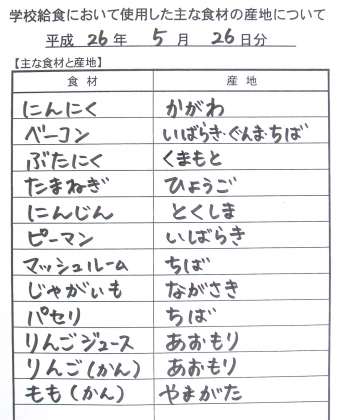 学校給食において使用した主な食材の産地について
平成 26 年 5 月 26 日分
【主な食材と産地】
食材 産地
にんにく かがわ
ベーコン いばらき・ぐんま・ちば
ぶたにく くまもと
たまねぎ ひょうご
にんじん とくしま
ピーマン いばらき
マッシュルーム ちば
じゃがいも ながさき
パセリ ちば
りんごジュース あおもり
りんご(かん) あおもり
もも(かん) やまがた